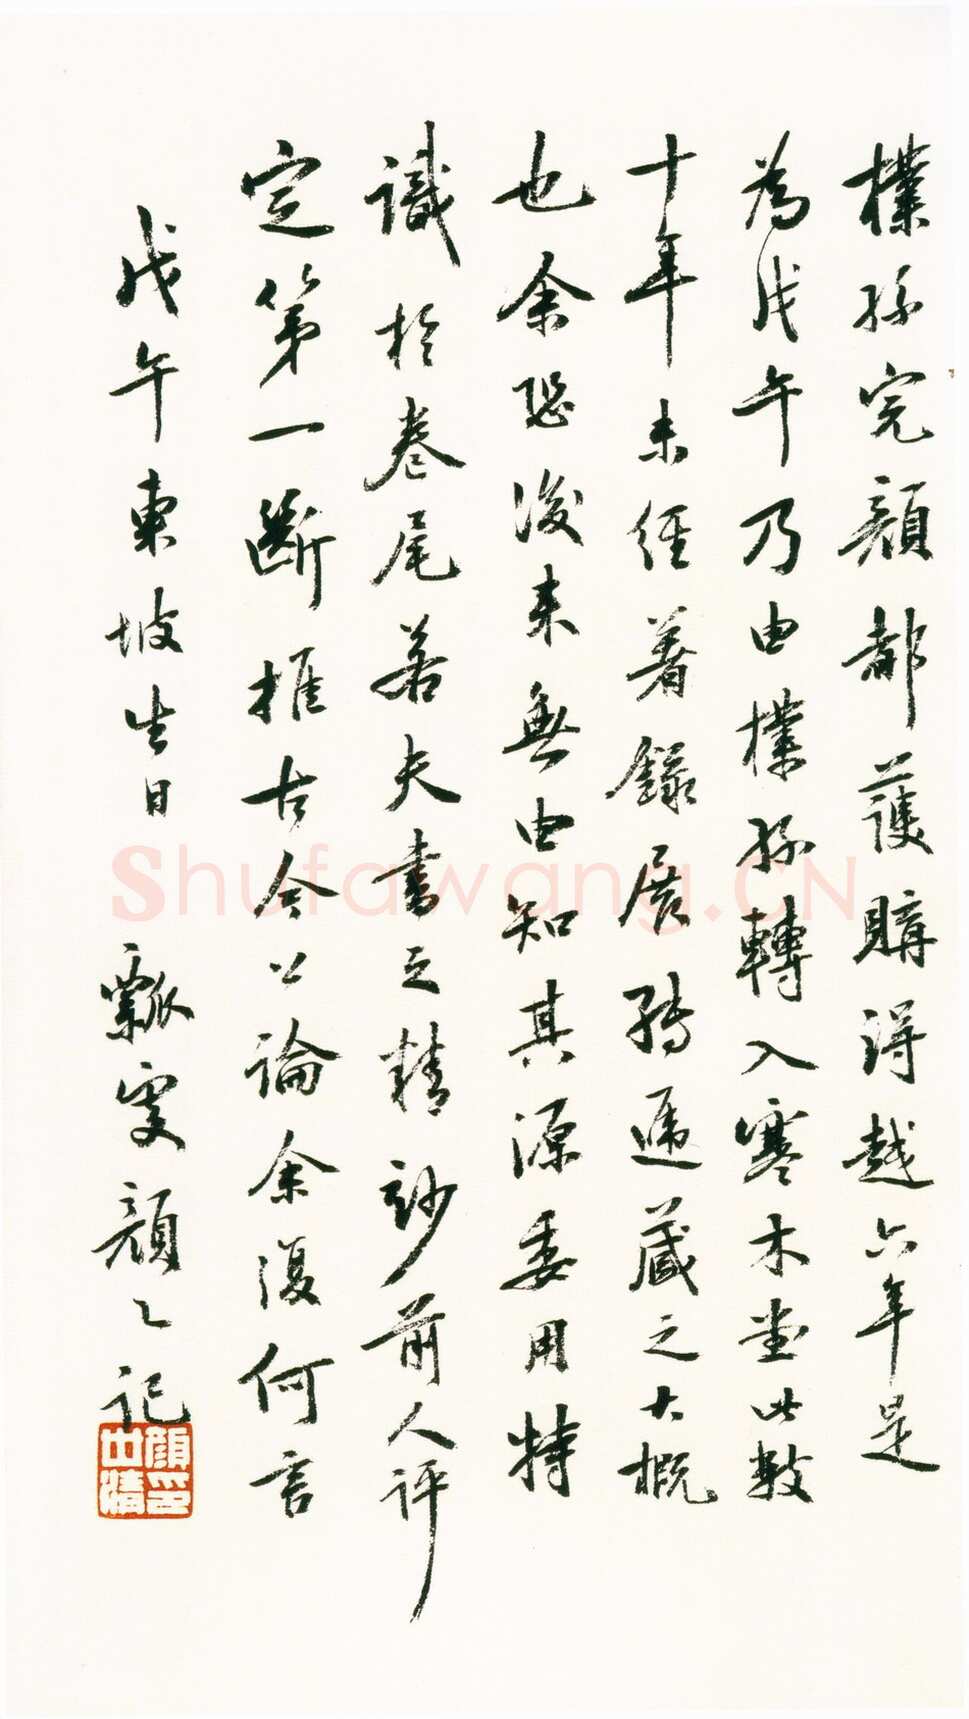 樸孫完顏都護購得越六年是
為戊午乃由樸孫轉入寒木堂此數
十年未經著錄展轉遞藏之大概
也余恐後來無由知其源委用特
識於卷尾若夫書之精玅前人評
定第一斷推古今公論余復何言
戊午東坡生日 瓢叟顏記
顏印世清
Shufawang.CN